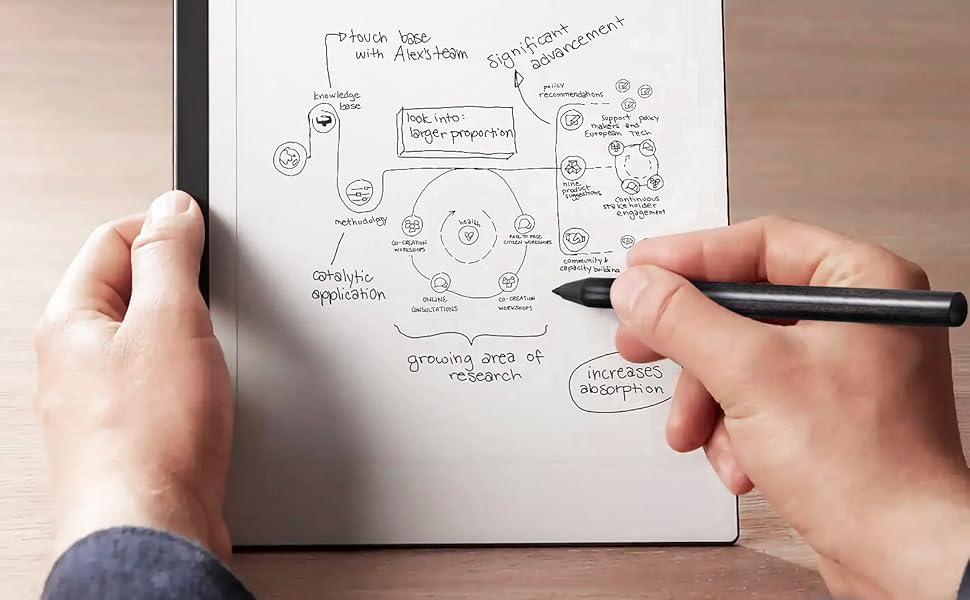 touch base
with Alex's team
significant
advancement
knowledge
base
policy
recommendations
look into:
larger proportion
support policy
makers and
European Tech
nine
product
suggestions
continuous
stakeholder
engagement
methodology
health
CO-CREATION
WORKSHOPS
FACE TO FACE
CITIZEN WORKSHOPS
community &
capacity building
catalytic
application
ONLINE
CONSULTATIONS
CO-CREATION
WORKSHOPS
growing area of
research
increases
absorption